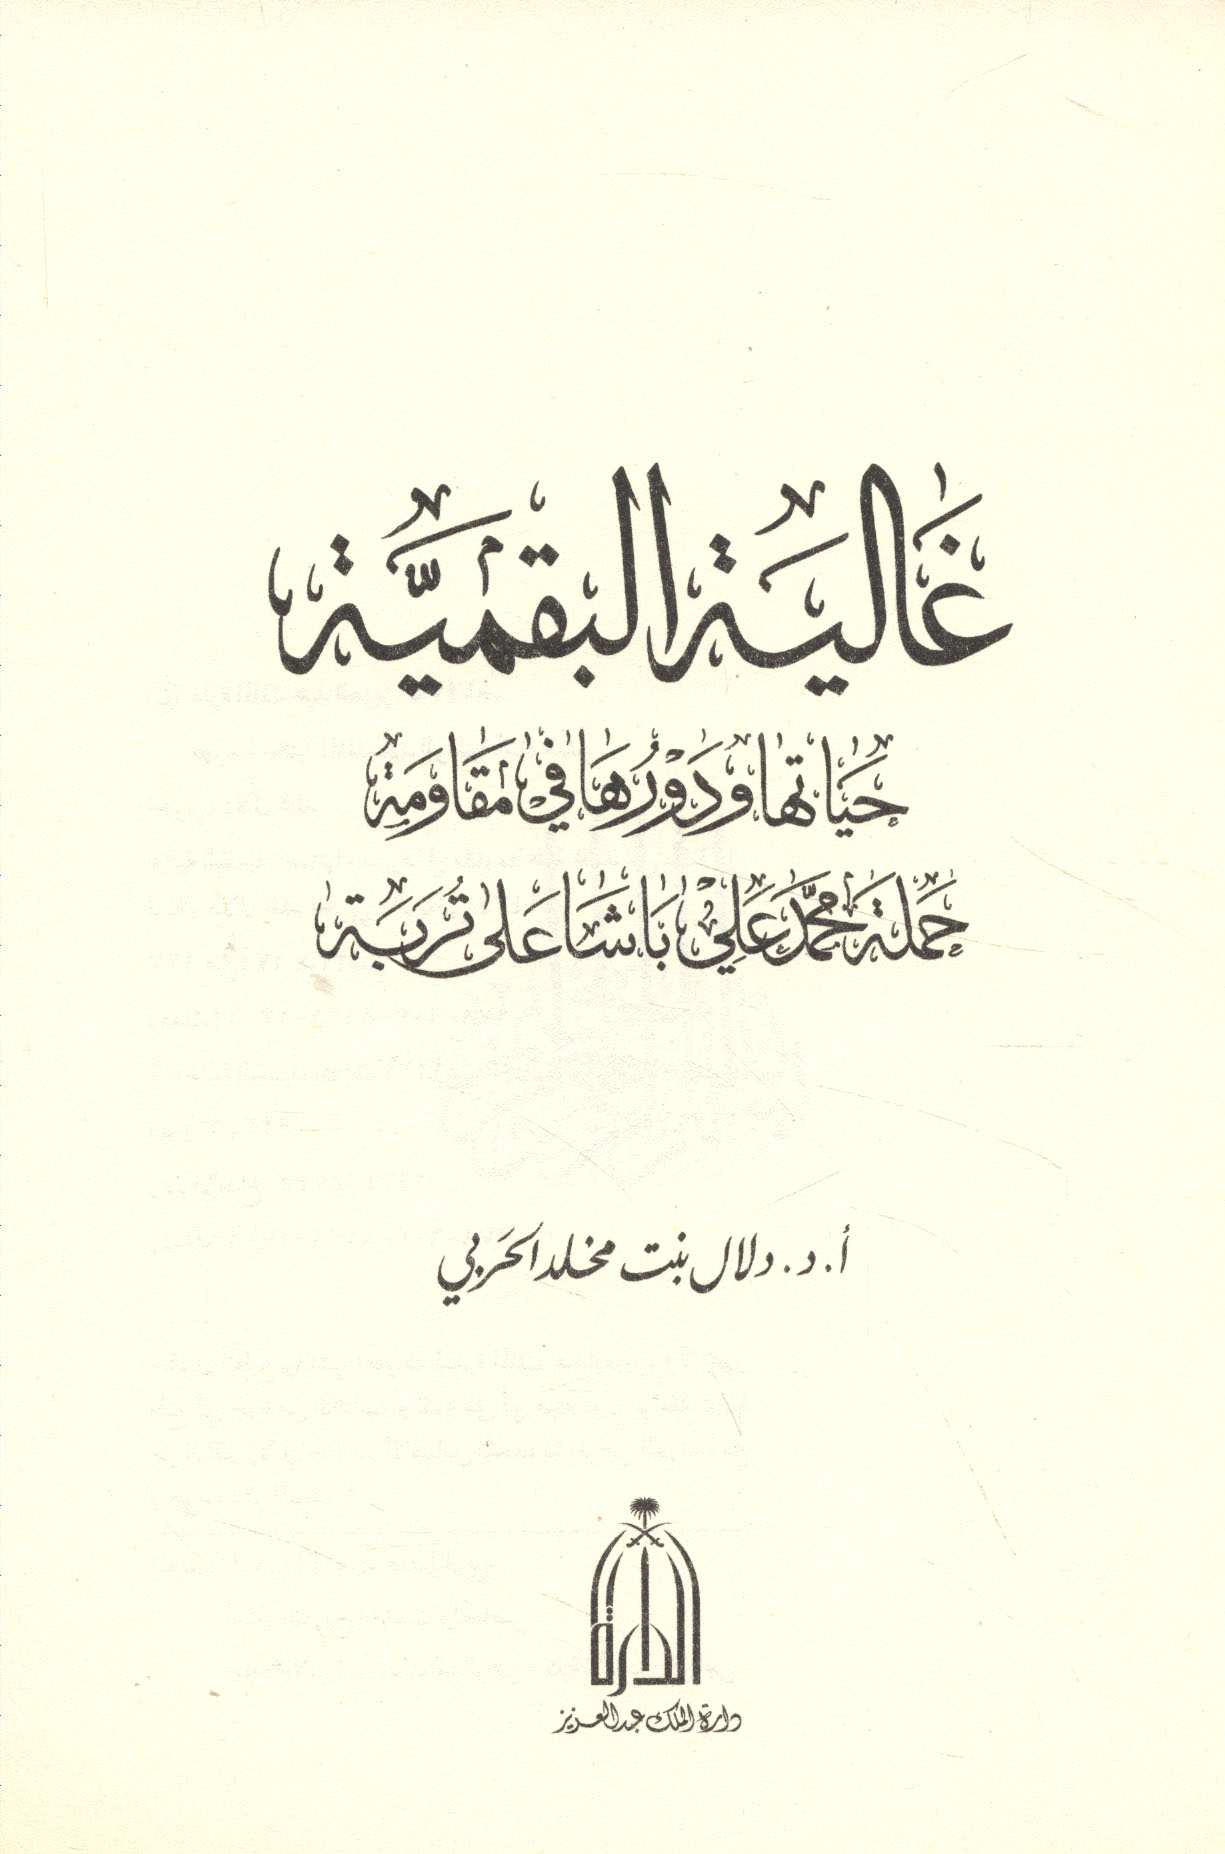 غالية البقمية
حياتها ودورها في مقاومة
حملة محمد علي باشا على تربة
أ. د. دلال بنت مخلد الحربي
الدارة
دارة الملك عبدالعزيز